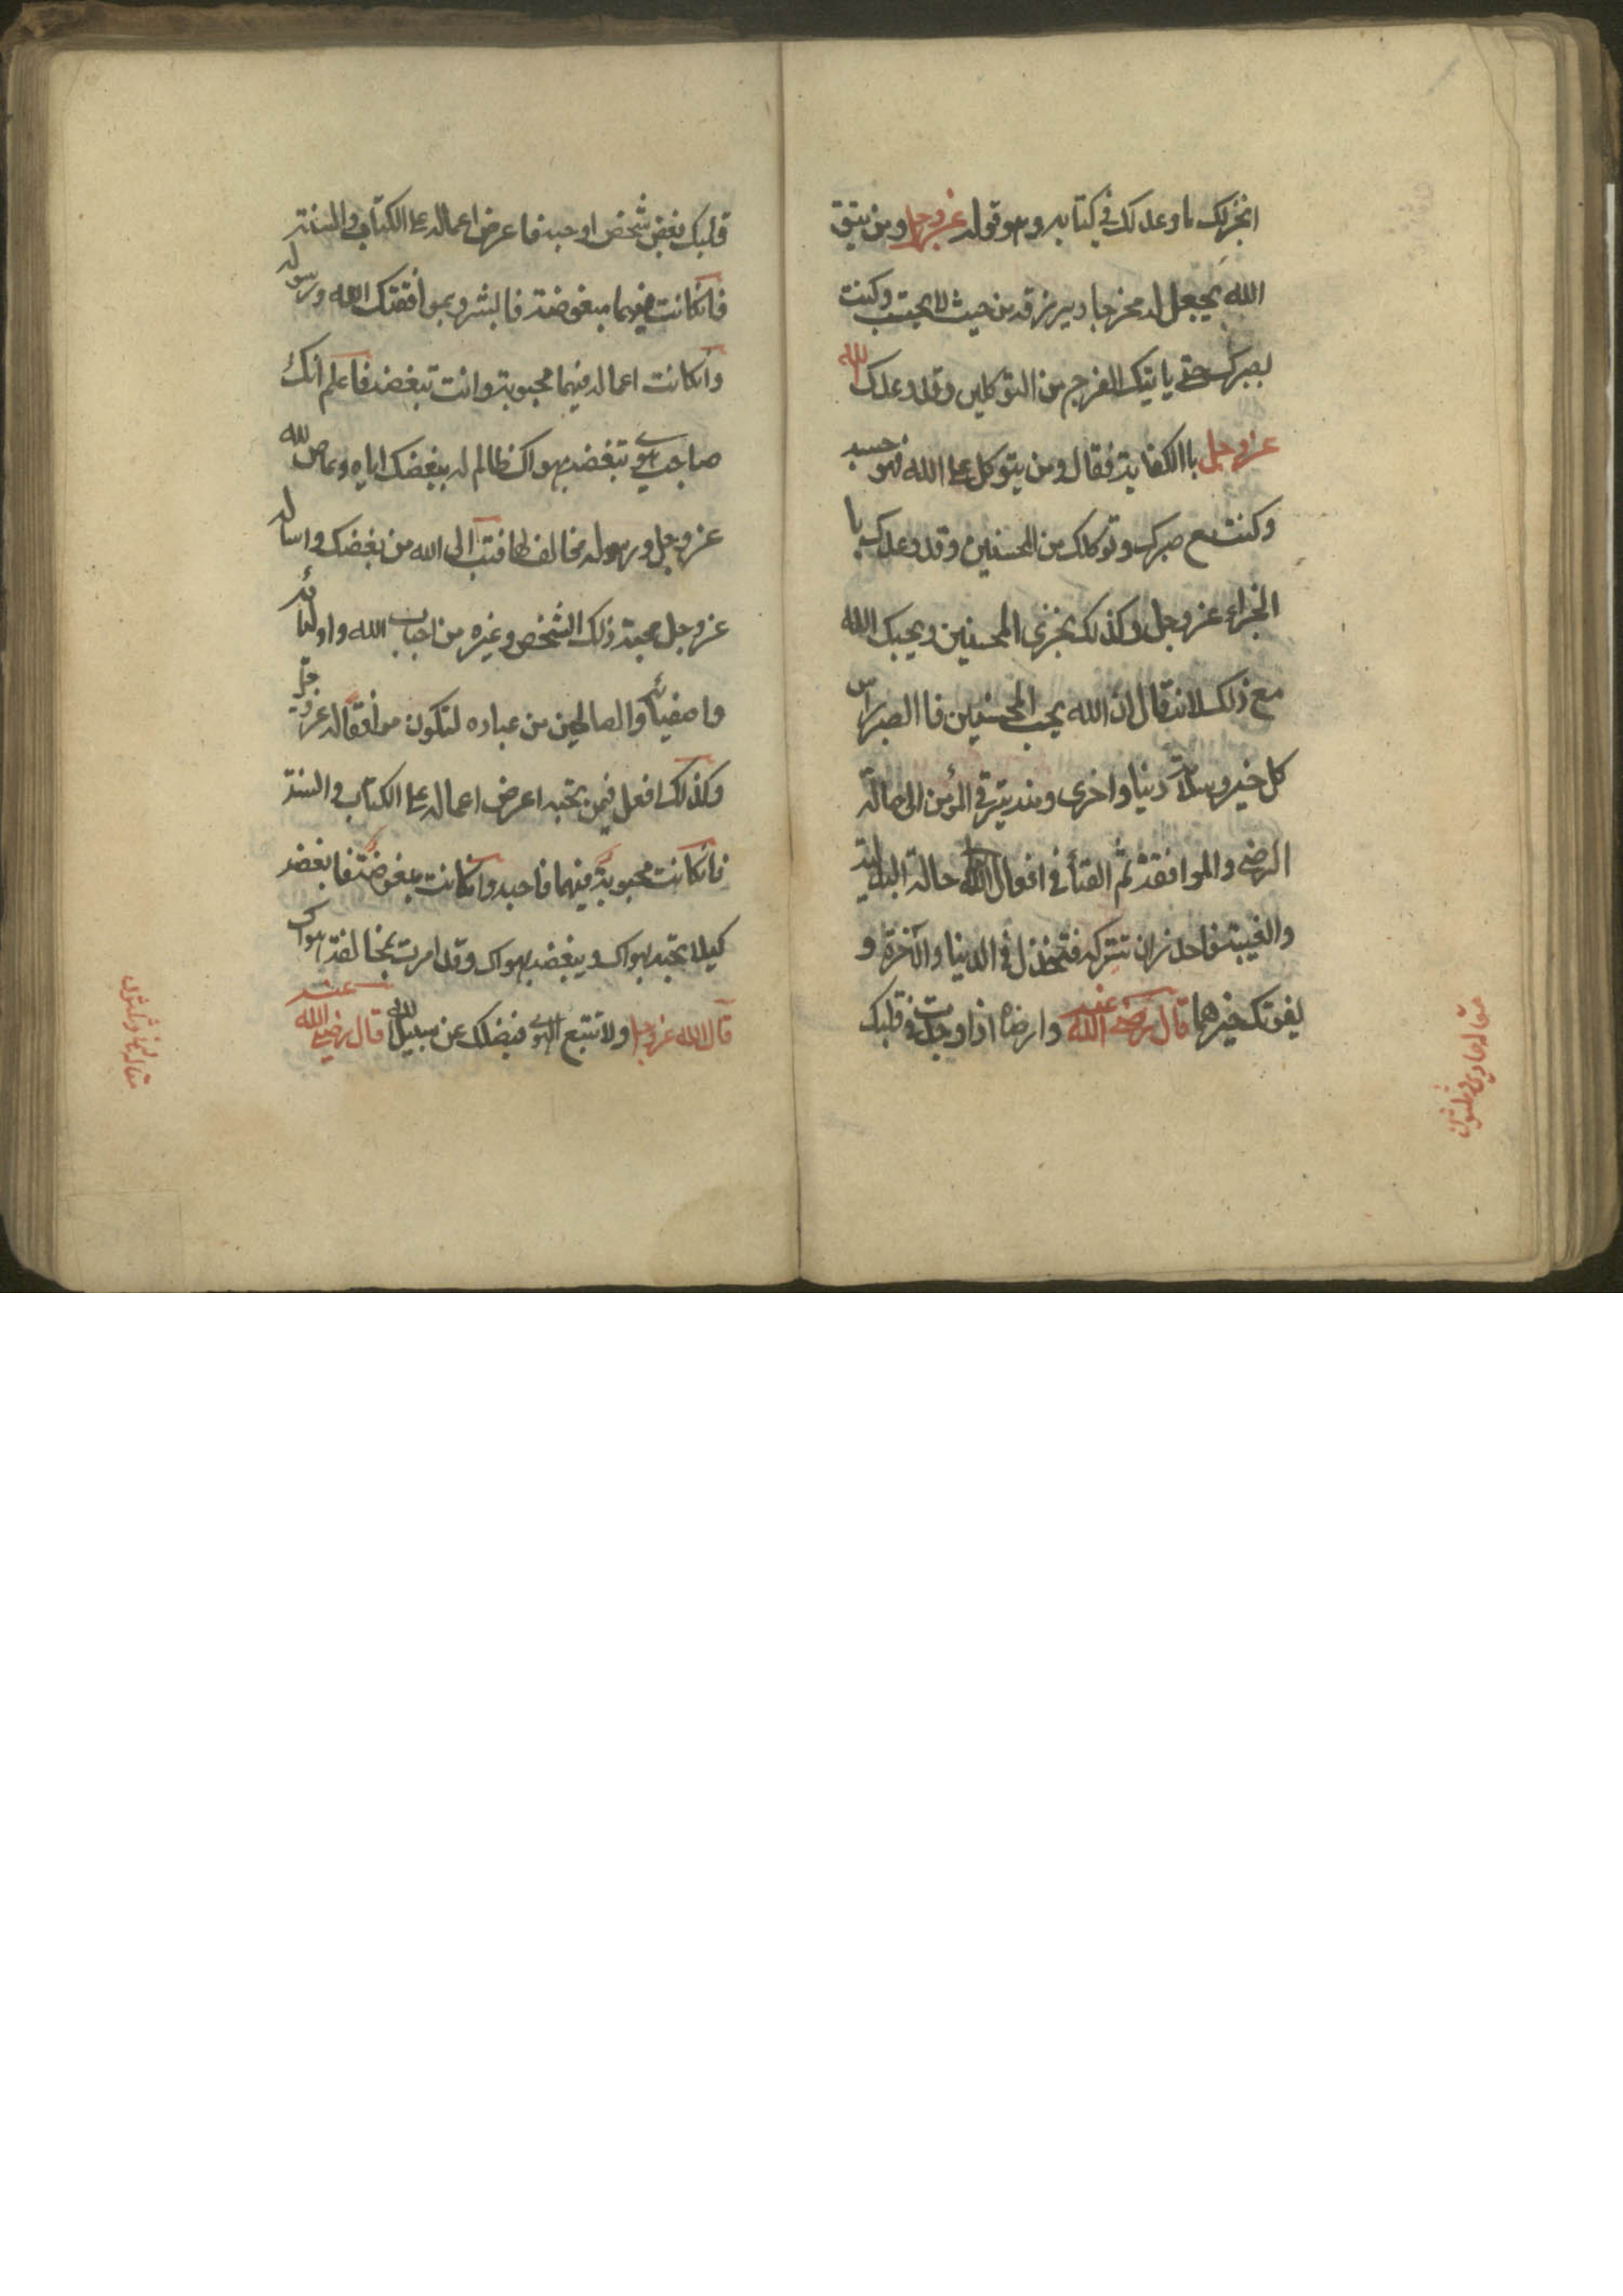 انجزلك ما وعدلك في كتابه وهو قوله عز وجل ومن يتق
الله يجعل له مخرجا ويرزقه من حيث لا يحتسب وكنت
بصبرك حتى ياتيك الفرج من المتوكلين وقد وعدك الله
عز وجل باالكفاية فقال ومن يتوكل على الله فهو حسبه
وكنت مع صبرك وتوكلك من المحسنين وقد وعدك با
الجزاء عز وجل وكذلك نجزى المحسنين ويحبك الله
مع ذلك لانه قال ان الله يحب المحسنين فاالصبر راس
كل خير وسلامة دنيا واخرى ومنه يترقى المؤمن الى حالة
الرضى والموافقة ثم الفنأ في افعال الله حالة البدلية
والغيبة فاحذر ان تتركه فتخذل في الدنيا والآخرة و
يفوتك خيرهما قال رضى الله عنه وارضاه اذا وجدت في قلبك
مقاله حادي وثلثون
قلبك بغض شخص او حبه فاعرض اعماله على الكتاب والسنة
فانكانت فيهما مبغوضة فابشر بموافقتك الله ورسوله
وانكانت اعماله فيهما محبوبة وانت تبغضه فاعلم انك
صاحب هوى تبغضه بهواك ظالم له ببغضك اياه وعاص لله
عز وجل ورسوله مخالف لهما فتب الى الله من بغضك واساله
عز وجل محبة ذلك الشخص وغيره من احباب الله واوليائه
واصفيائه والصالحين من عباده لتكون موافقا له عز وجل
وكذلك افعل فيمن تحبه اعرض اعماله على الكتاب والسنة
فانكانت محبوبة فيهما فاحبه وانكانت مبغوضة فابغضه
كيلا تحبه بهواك ويبغضه بهواك وقد امرت بمخالفة هواك
قال الله عز وجل ولا تتبع الهوى فيضلك عن سبيل الله قال رضي الله عنه